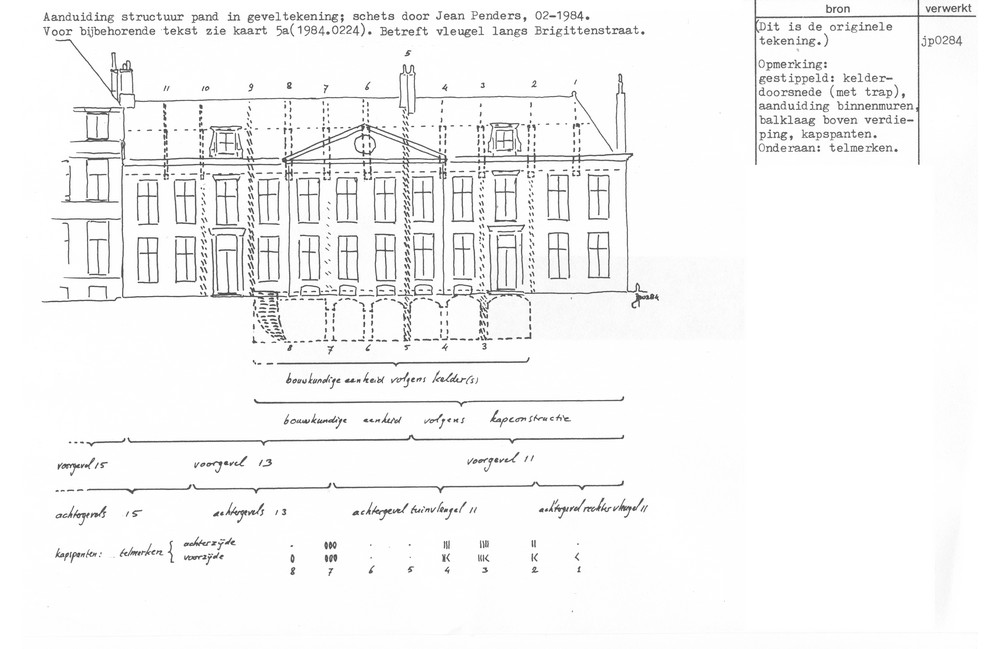 Aanduiding structuur pand in geveltekening; schets door Jean Penders, 02-1984.
Voor bijbehorende tekst zie kaart 5a(1984.0224). Betreft vleugel langs Brigittenstraat.
bron verwerkt
(Dit is de originele
tekening.)
jp0284
Opmerking:
gestippeld: kelder-
doorsnede (met trap),
aanduiding binnenmuren,
balklaag boven verdie-
ping, kapspanten.
Onderaan: telmerken.
5
11 10 9 8 7 6 4 3 2 1
jp0284
8 7 6 5 4 3
bouwkundige eenheid volgens kelder(s)
bouwkundige eenheid volgens kapconstructie
voorgevel 15 voorgevel 13 voorgevel 11
achtergevels 15 achtergevels 13 achtergevel tuinvleugel 11 achtergevel rechter vleugel 11
kapspanten: telmerken { achterzijde
voorzijde
8 7 6 5 4 3 2 1